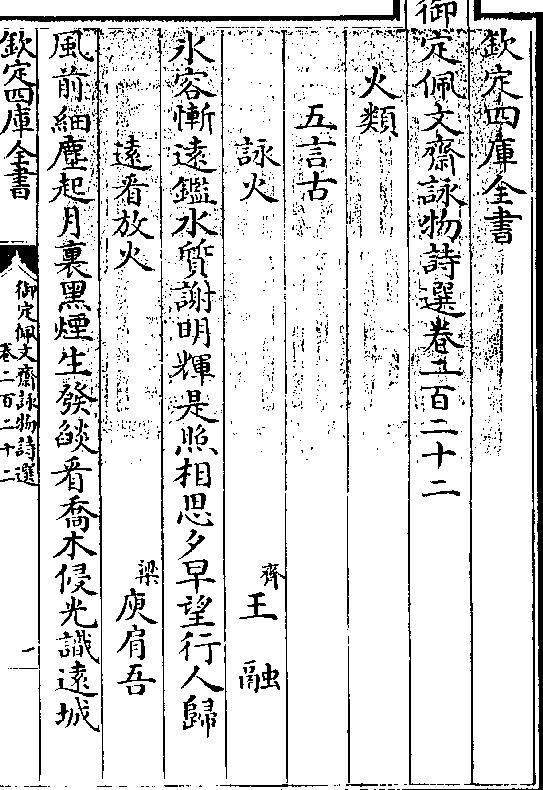 欽定四庫全書
御定佩文齋詠物詩選卷二百二十二
火類
五言古
詠火
齊
王融
氷容慚遠鑑水質謝明輝是照相思夕早望行人歸
遠看放火
梁
庾肩吾
風前細塵起月裏黑煙生發燄看喬木侵光識遠城
欽定四庫全書
御定佩文齋詠物詩選
卷二百二十二
一